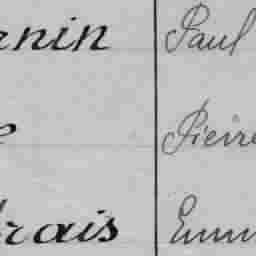 rnin Paul
e Pierre
rais Emm